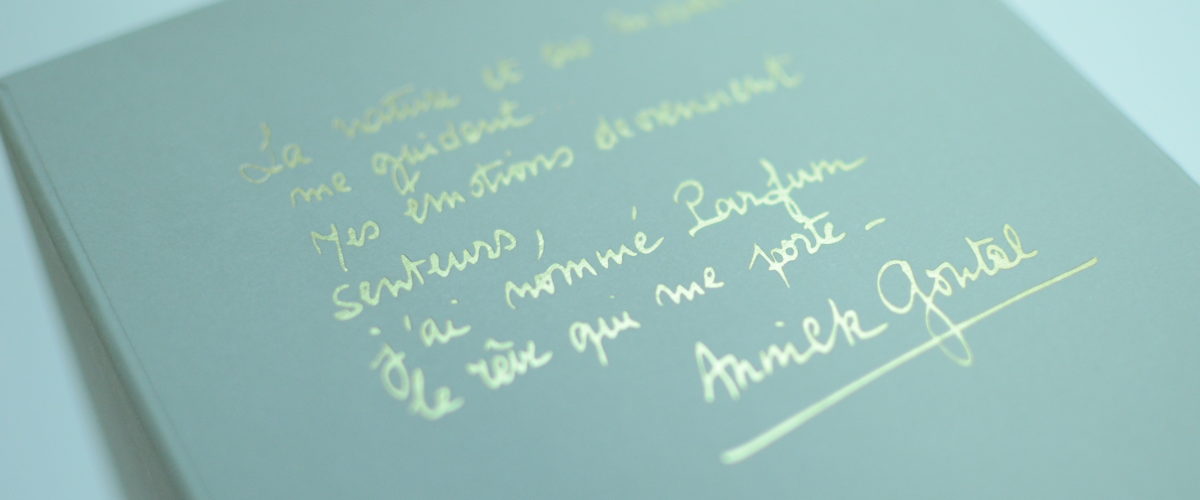 La nature et sa
me guident
Mes émotions deviennent
senteurs,
j'ai nommé Parfum
le rêve qui me porte -
Annick Goutal